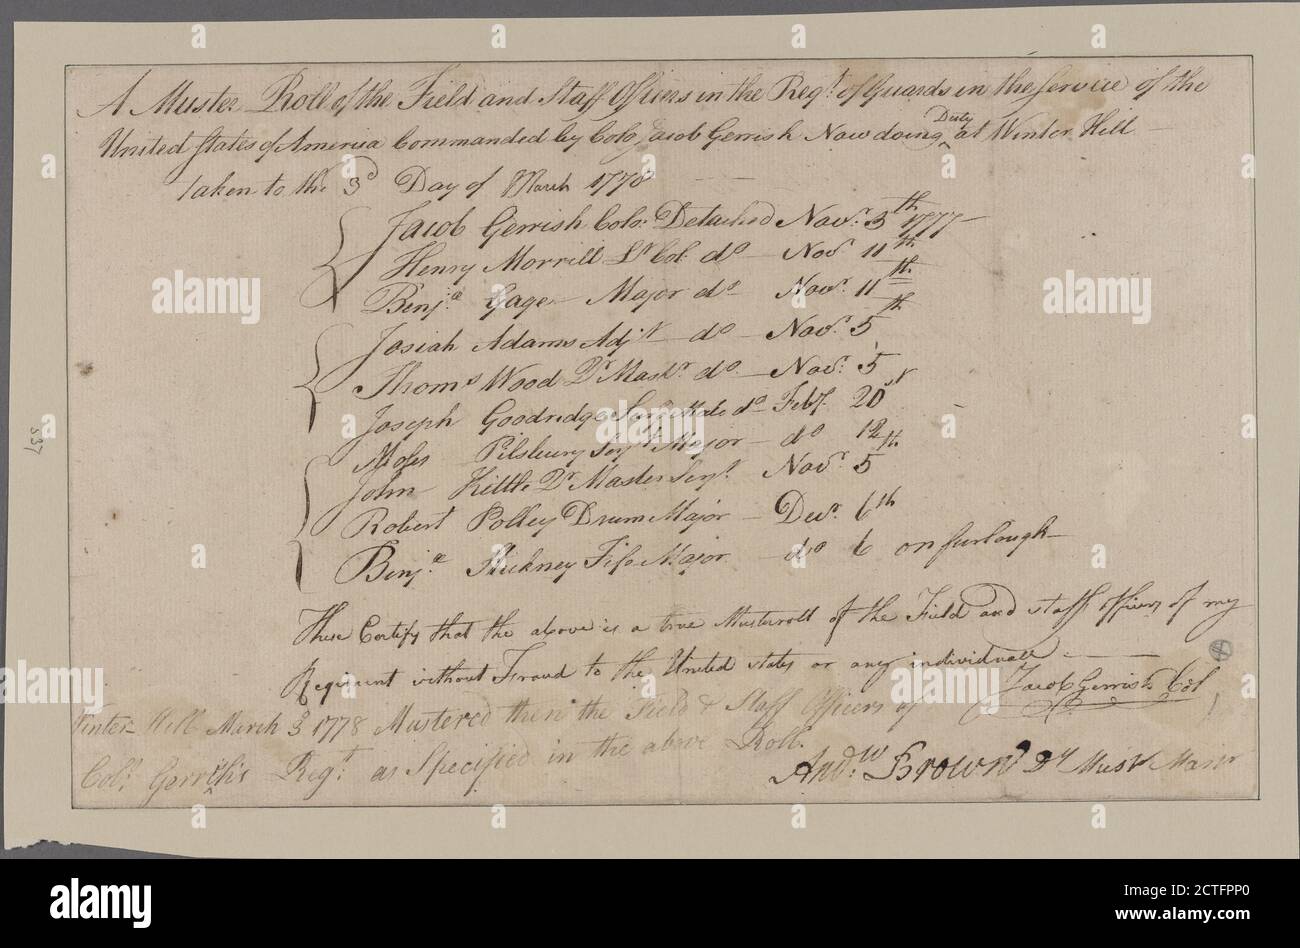 A Muster Roll of the Field and Staff Officers in the Regt. of Guards in the Service of the
United States of America Commanded by Colo. Jacob Gerrish Now doing Duty at Winter Hill
taken to the 3d Day of March 1778
Jacob Gerrish Colo: Detached Novr. 5th 1777
Henry Morrill Lt Col. do Novr 11th
Benja. Gage Major do Novr. 11th
Josiah Adams Adjt do Novr. 5th
Thoms Wood Qr Mastr. do Novr. 5
Joseph Goodridge do Feby. 20
Moses Pilsbury Sergt Major do 12th
John Kettle Qr Master Sergt. Novr. 5th
Robert Polley Drum Major Decr. 6th
Benja. Stickney Fife Major do 6 on furlough
These Certify that the above is a true Musteroll of the Field and staff officers of my
Regiment without Fraud to the United states or any individuall
Jacob Gerrish Col
Winter Hill March 3d 1778 Mustered then the Field & Staff Officers of
Colo. Gerrish's Regt. as Specified in the above Roll.
Andw. Brown Dy Mustr Mastr
337
a
alamy
alamy
Image ID: 2CTFPP0
www.alamy.com